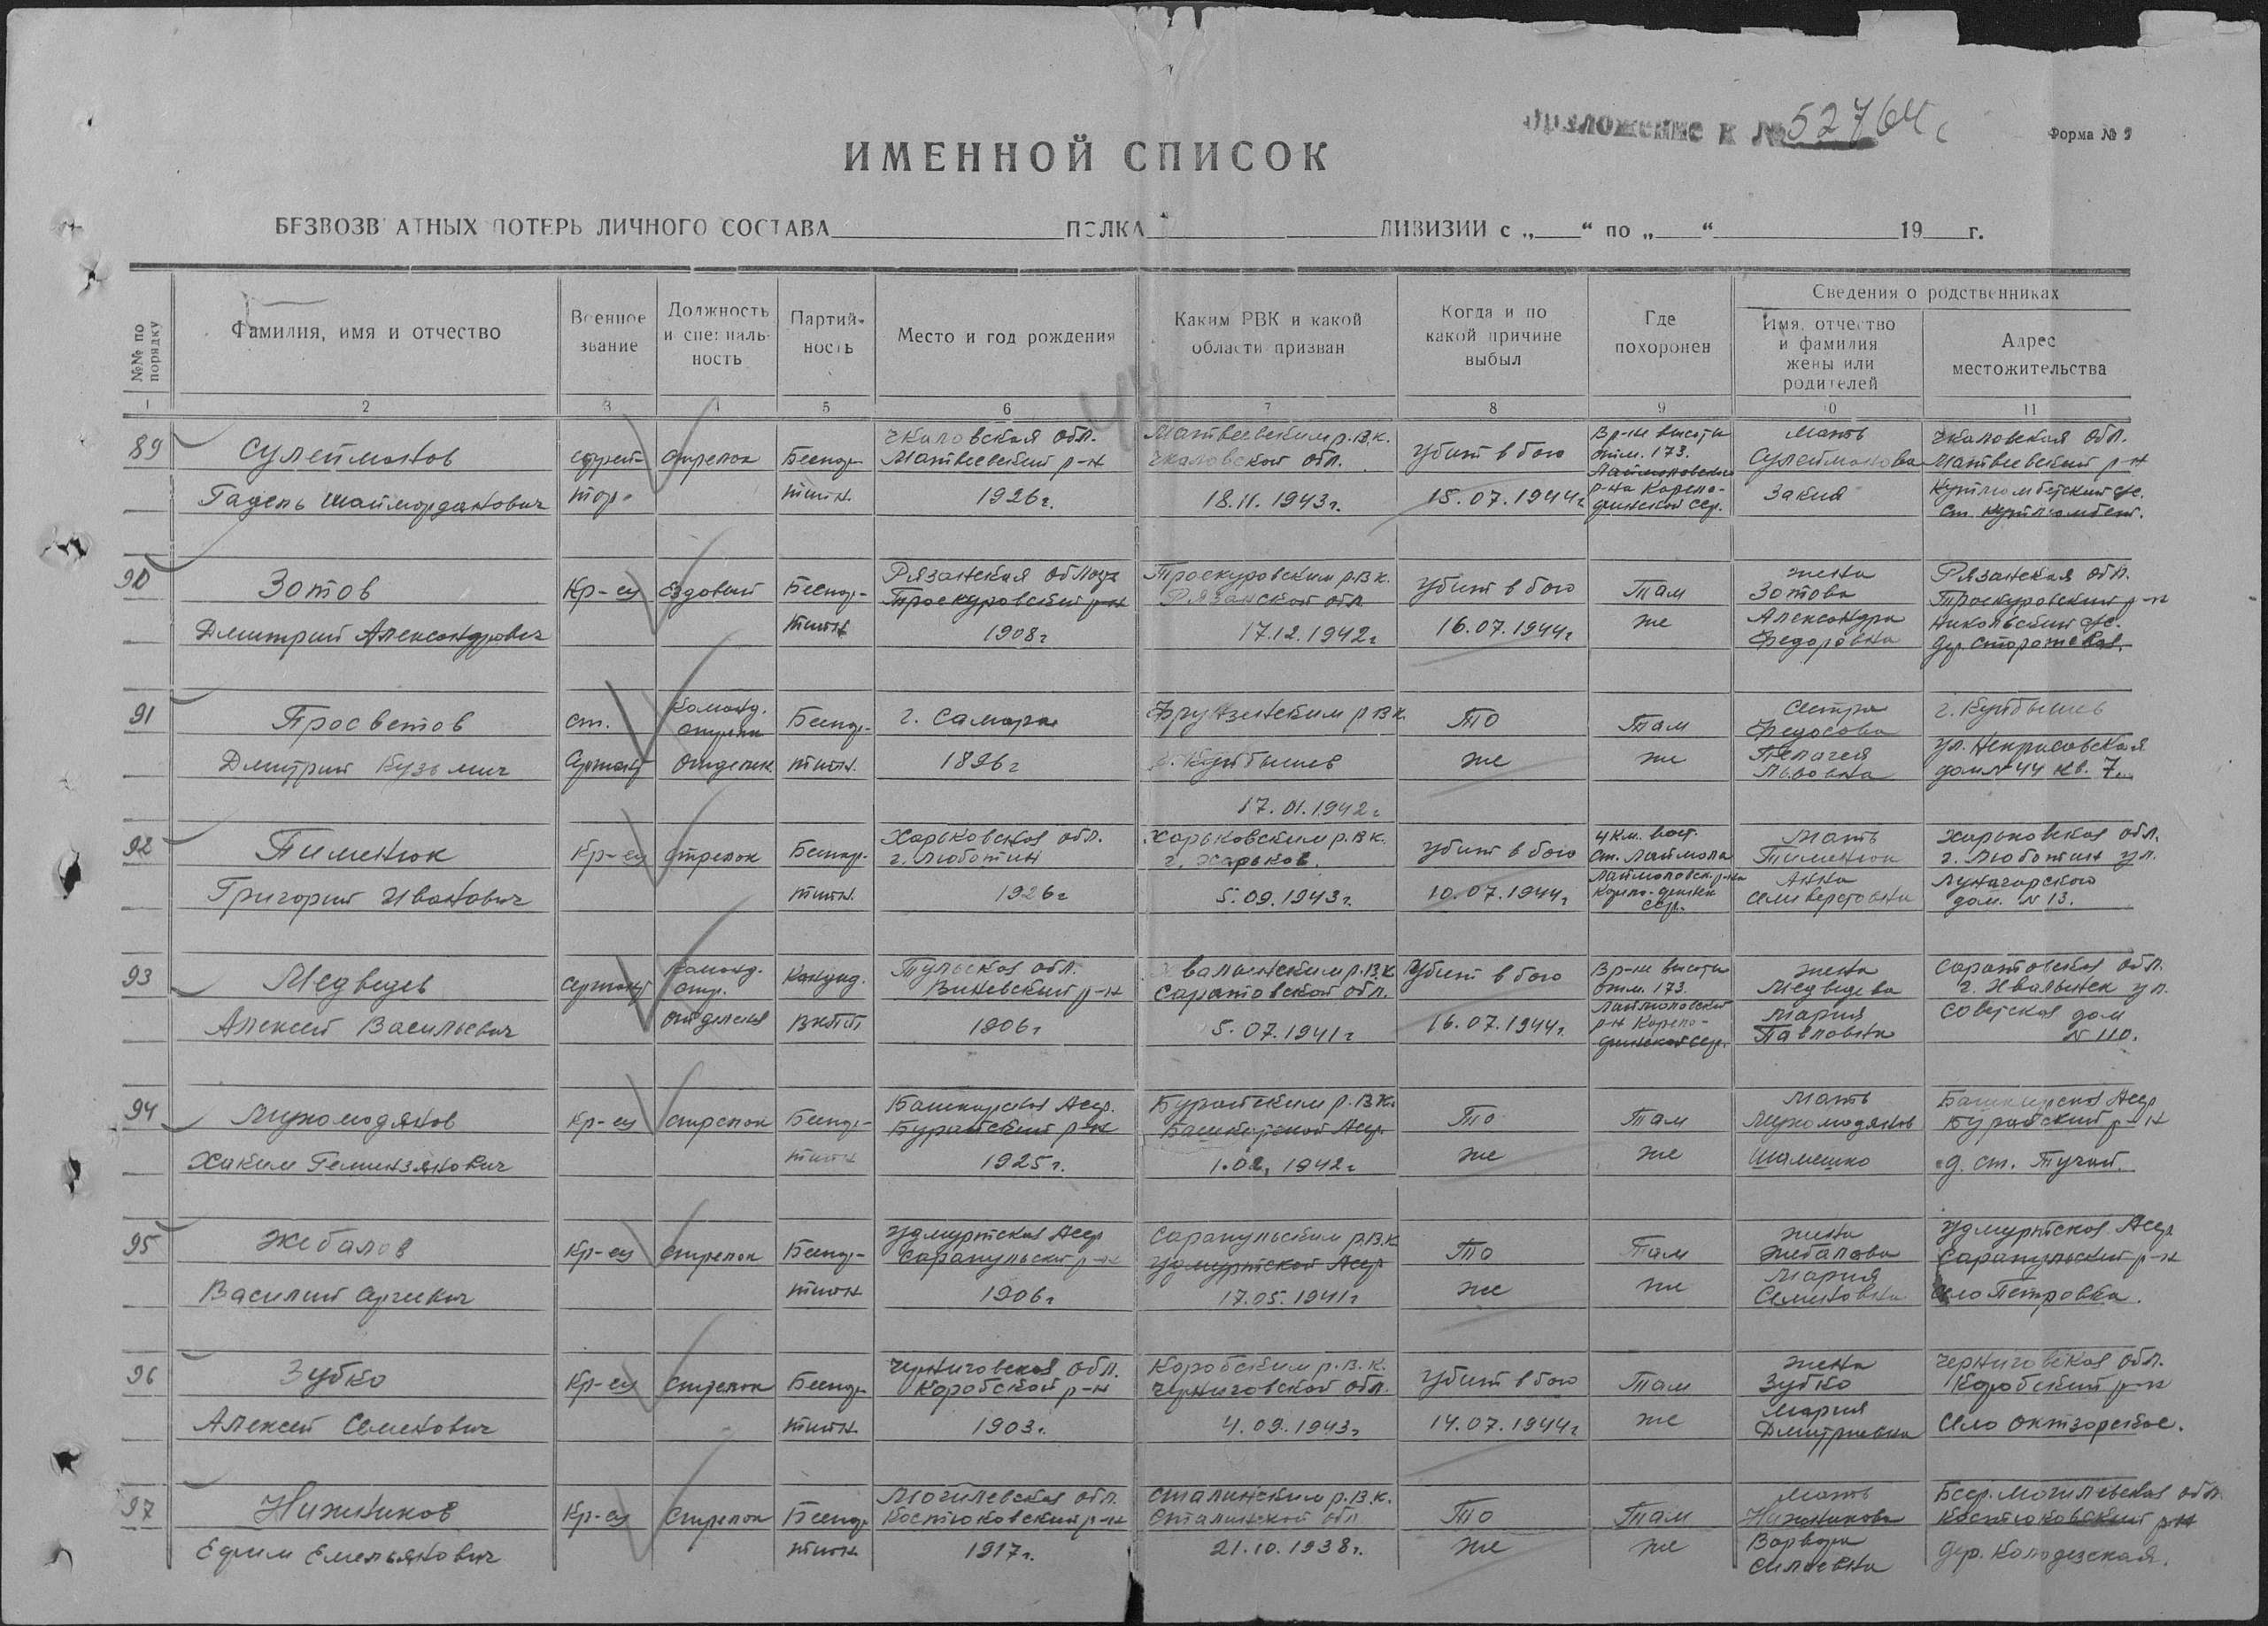 Приложение к № 52764с
Форма № 2
ИМЕННОЙ СПИСОК
БЕЗВОЗВ АТНЫХ ПОТЕРЬ ЛИЧНОГО СОСТАВА ПОЛКА ДИВИЗИИ с „ “ по „ “ 19 г.
№№ по порядку
Фамилия, имя и отчество
Военное звание
Должность и специальность
Партийность
Место и год рождения
Каким РВК и какой области призван
Когда и по какой причине выбыл
Где похоронен
Сведения о родственниках
Имя, отчество и фамилия жены или родителей
Адрес местожительства
1 2 3 4 5 6 7 8 9 10 11
89
Сулейманов
Гадель Шаймарданович
стрелок
Беспар-
тийн.
Чкаловская обл.
Матвеевский р-н
1926г.
Матвеевским р.в.к.
Чкаловской обл.
18.11.1943г.
Убит в бою
15.07.1944г
В р-не высоты
отм. 173.
Лаймоловского
р-на Карело-
финской сср.
мать
Сулейманова
Закия
Чкаловская обл.
Матвеевский р-н
90
Зотов
Дмитрий Александрович
Кр-ец
Ездовый
Беспар-
тийн
Рязанская область
Троекуровский р-н
1908г
Троекуровским р.в.к.
Рязанской обл
17.12.1942г
Убит в бою
16.07.1944г
Там
же
жена
Зотова
Александра
Федоровна
Рязанская обл.
Троекуровский р-н
Никольский с/с.
дер.
91
Просветов
Дмитрий Кузьмич
ст.
Сержант
Команд.
стрелк
отделен.
Беспар-
тийн.
г. Самара
1896г
Фрунзенским р.в.к.
г. Куйбышев
17.01.1942г
То
же
Там
же
Сестра
Федосова
Пелагея
Львовна
г. Куйбышев
ул. Некрасовская
дом № 44 кв. 7.
92
Пименюк
Григорий Иванович
Кр-ец
стрелок
Беспар-
тийн.
Харьковская обл.
г. Люботин
1926г
Харьковским р.в.к.
г. Харьков.
5.09.1943г.
Убит в бою
10.07.1944г
4 км. вост.
ст. Лаймола
Лаймоловск. р-на
Карело-финск
сср.
мать
Пименюк
Анна
Селиверстовна
Харьковская обл.
г. Люботин ул.
Луначарского
дом. № 13.
93
Медведев
Алексей Васильевич
Сержант
Команд.
стр.
отделения
Кандид.
ВКПП
Тульская обл.
Виневский р-н
1906г
Хвалынским р.в.к
Саратовской обл.
5.07.1941г
Убит в бою
16.07.1944г.
В р-не высоты
отм. 173.
Лаймоловский
р-н Карело-
финской сср.
жена
Медведева
Мария
Павловна
Саратовская обл.
г. Хвалынск ул.
Советская дом
№ 110.
94
Мухомодянов
Хаким Гелинзянович
Кр-ец
стрелок
Беспар-
тийн
Башкирская Асср.
Бурайский р-н
1925г.
Бурайским р.в.к.
Башкирской Асср
1.02.1942г
То
же
Там
же
мать
Мухомодянов
Башкирская Асср
Бурайский р-н
д. ст. Тучай.
95
Жебалов
Василий
Кр-ец
стрелок
Беспар-
тийн
Удмуртская Асср
Сарапульский р-н
1906г
Сарапульским р.в.к
Удмуртской Асср
17.05.1941г
То
же
Там
же
жена
Жебалова
Мария
Семеновна
Удмуртская Асср
Сарапульский р-н
село Петровка.
96
Зубко
Алексей Семенович
Кр-ец
стрелок
Беспар-
тийн
Черниговская обл.
Коробской р-н
1903г.
Коробским р.в.к.
Черниговской обл.
4.09.1943г
Убит в бою
14.07.1944г
Там
же
жена
Зубко
Мария
Дмитриевна
Черниговская обл.
Коробский р-н
Село
97
Нижников
Ефим Емельянович
Кр-ец
стрелок
Беспар-
тийн.
Могилевская обл.
Костюковский р-н
1917г.
Сталинским р.в.к.
Сталинской обл
21.10.1938г.
То
же
Там
же
мать
Нижникова
Варвара
Силаевна
Бсср. Могилевская обл.
Костюковский р-н
дер. Колодезская.